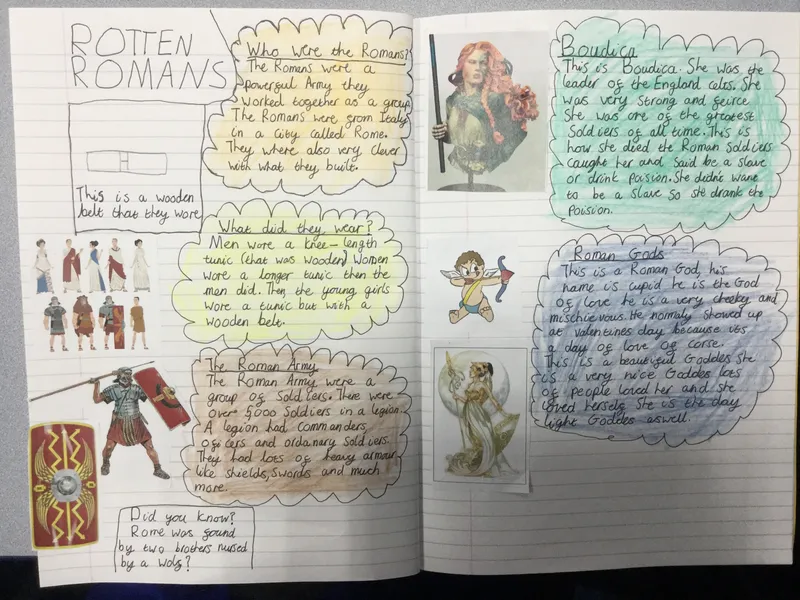 ROTTEN
ROMANS
This is a wooden
belt that they wore
Who were the Romans?
The Romans were a
powerful Army they
worked together as a group
The Romans were from Italy
in a city called Rome.
They where also very clever
with what they built.
What did they wear?
Men wore a knee-length
tunic (that was wooden) Women
wore a longer tunic then the
men did. Then the young girls
wore a tunic but with a
wooden belt.
The Roman Army
The Roman Army were a
group of Soldiers. There were
over 5,000 Soldiers in a legion.
A legion had commanders,
officers and ordanary Soldiers.
They had lots of heavy armour
like shields, Swords and much
more.
Did you know?
Rome was found
by two brothers nursed
by a wolf?
Boudica
This is Boudica. She was the
leader of the England celts. She
was very strong and feirce
She was one of the greatest
Soldiers of all time. This is
how she died the Roman Soldiers
caught her and said be a slave
or drink poision. She didn't want
to be a slave so she drank the
Poision.
Roman Gods
This is a Roman God, his
name is cupid he is the God
of love he is a very cheeky and
mischievous. He normaly showed up
at valentines day because its
a day of love of corse.
This is a beautiful Goddes she
is a very nice Goddes lots
of people loved her and she
loved herself. She is the day
light Goddes aswell.